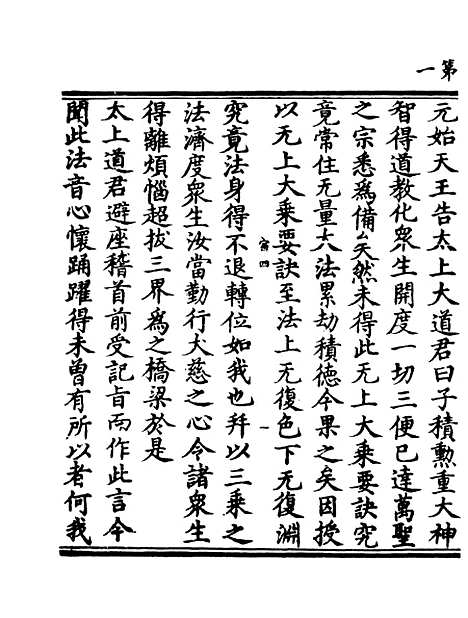 第一
元始天王告太上大道君曰子積勲重大神
智得道教化衆生開度一切三便已達萬聖
之宗悉爲備矣然未得此无上大乗要訣究
竟常住无量大法累劫積德今果之矣因授
以无上大乗要訣至法上无復色下无復淵
究竟法身得不退轉位如我也幷以三乗之
法濟度衆生汝當勤行大慈之心令諸衆生
得離煩惱超拔三界爲之橋梁於是
太上道君避座稽首前受記旨而作此言今
聞此法音心懷踊躍得未曽有所以者何我